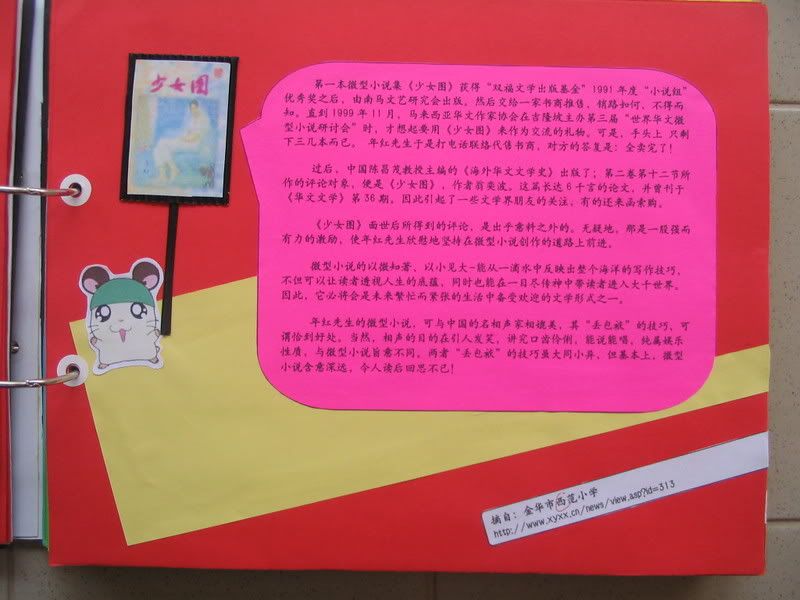 少女图
第一本微型小说集《少女图》获得“双福文学出版基金”1991年度“小说组”
优秀奖之后，由南马文艺研究会出版，然后交给一家书商推售，销路如何，不得而
知。直到1999年11月，马来西亚华文作家协会在吉隆坡主办第三届“世界华文微
型小说研讨会”时，才想起要用《少女图》来作为交流的礼物。可是，手头上 只剩
下三几本而已。 年红先生于是打电话联络代售书商，对方的答复是：全卖完了！
过后，中国陈昌茂教授主编的《海外华文文学史》出版了；第二卷第十二节所
作的评论对象，便是《少女图》，作者翁奕波。这篇长达6千言的论文，并曾刊于
《华文文学》第36期，因此引起了一些文学界朋友的关注，有的还来函索购。
《少女图》面世后所得到的评论，是出乎意料之外的。无疑地，那是一股强而
有力的激励，使年红先生欣慰地坚持在微型小说创作的道路上前进。
微型小说的以微知著、以小见大-能从一滴水中反映出整个海洋的写作技巧，
不但可以让读者透视人生的底蕴，同时也能在一目尽传神中带读者进入大千世界。
因此，它必将会是未来繁忙而紧张的生活中备受欢迎的文学形式之一。
年红先生的微型小说，可与中国的名相声家相媲美，其“丢包袱”的技巧，可
谓恰到好处。当然，相声的目的在引人发笑，讲究口齿伶俐，能说能唱，纯属娱乐
性质，与微型小说旨意不同，两者“丢包袱”的技巧虽大同小异，但基本上，微型
小说含意深远，令人读后回思不已！
摘自：金华市西范小学
http://www.xyxx.cn/news/view.asp?id=313